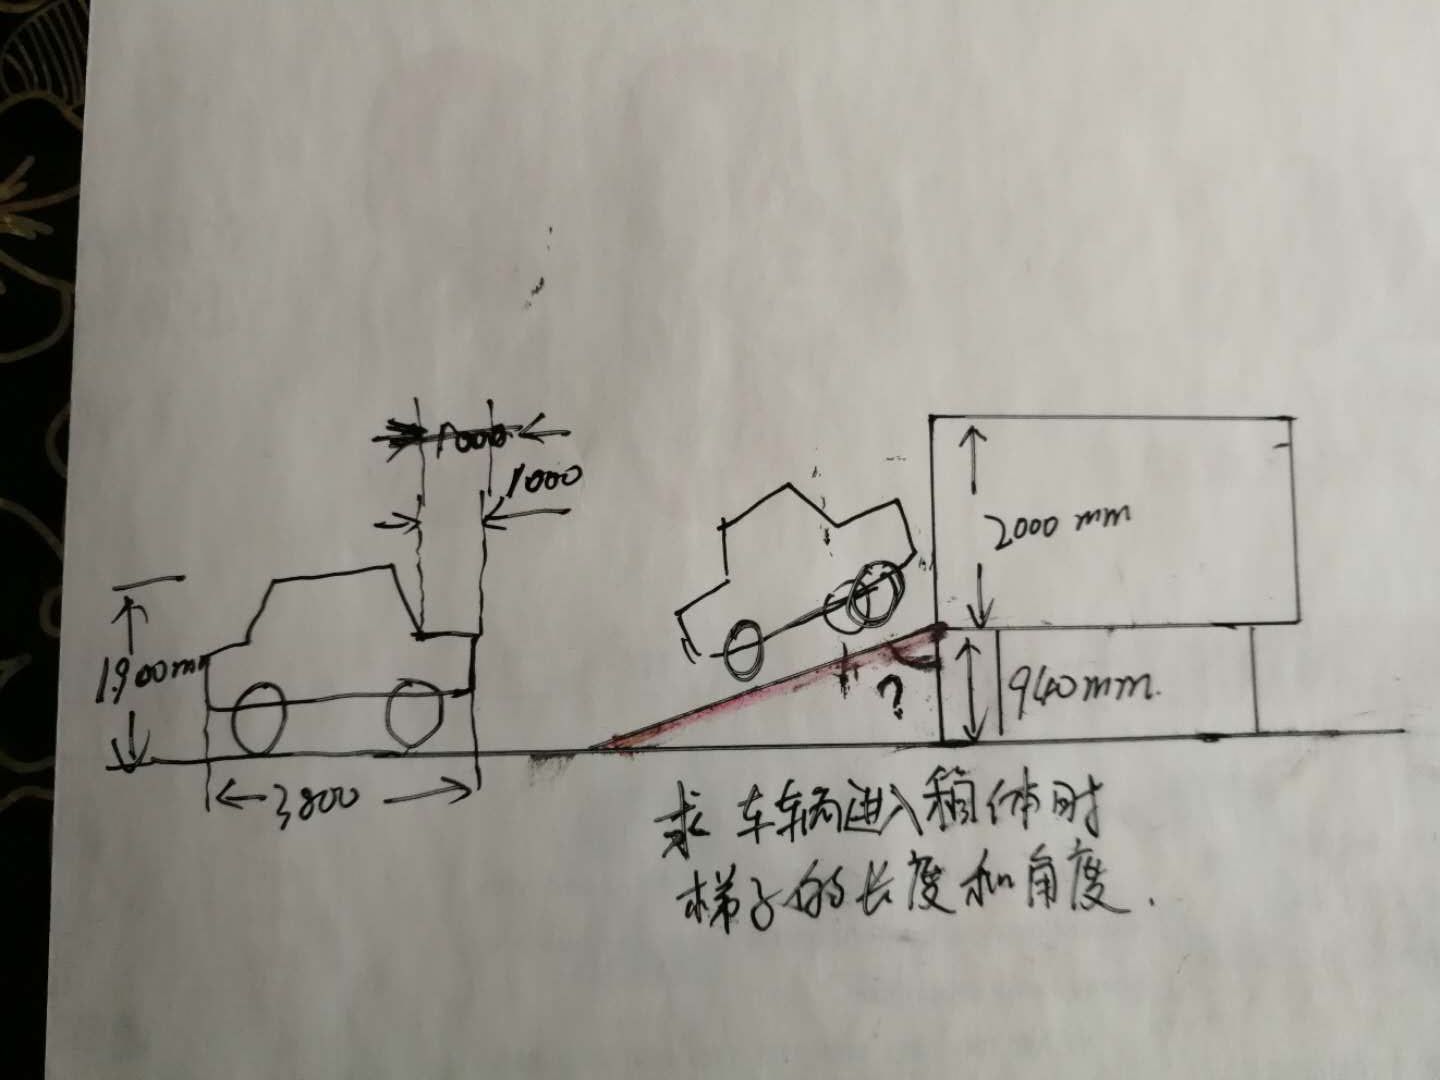 1000
1000
2000 mm
1900mm
940mm.
?
3800
求 车辆进入箱体时
梯子的长度和角度.